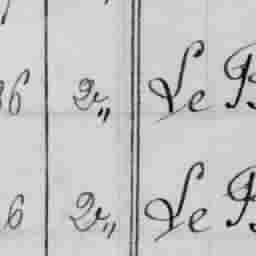 36 2,, Le B
6 2,, Le B